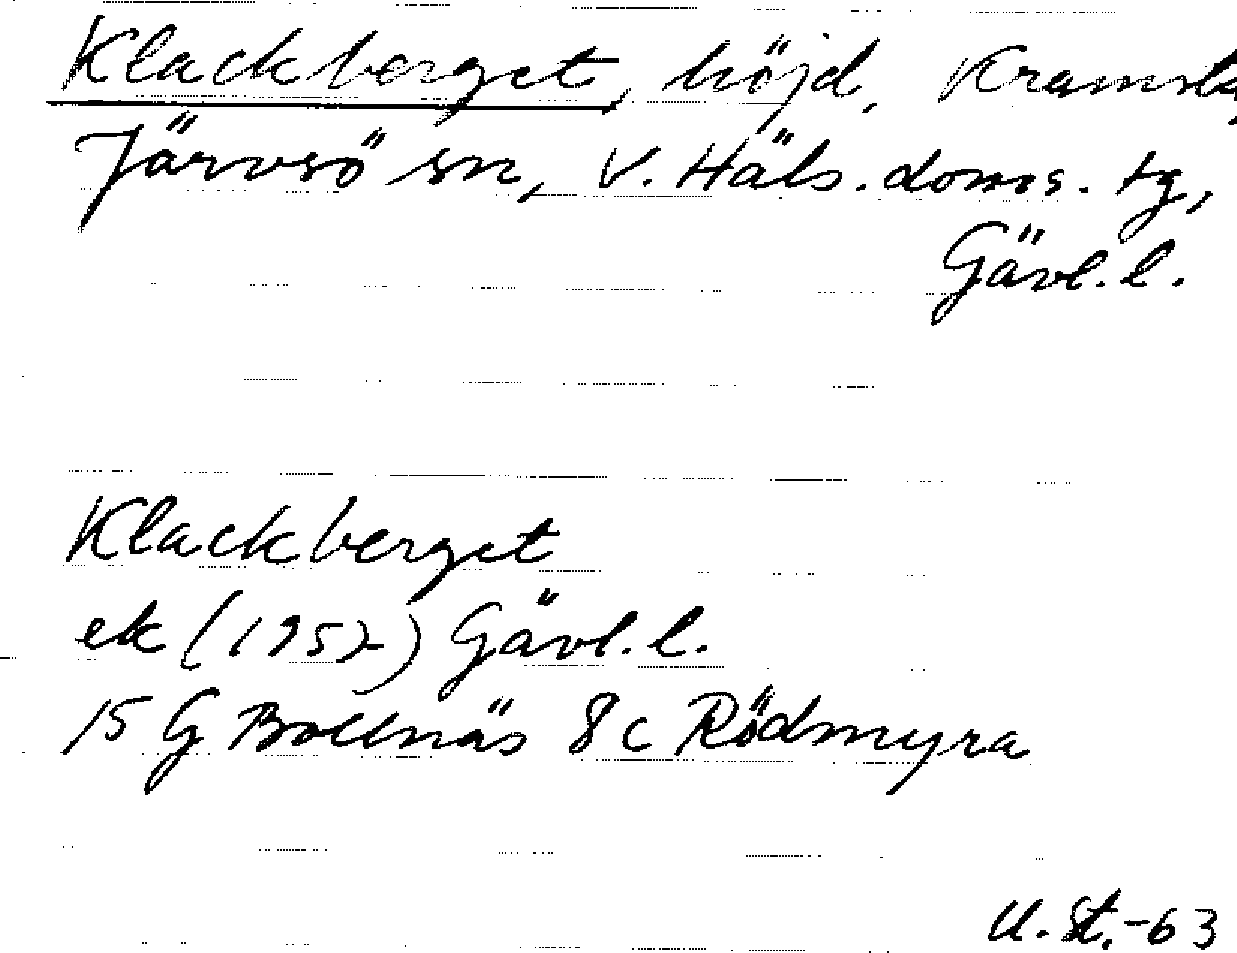 Klackberget, höjd, Kramsta,
Järvsö sn, V. Häls. doms. tg,
Gävl. l.
Klackberget
ek (1957) Gävl. l.
15 G Bollnäs 8c Rödmyra
U. St. -63